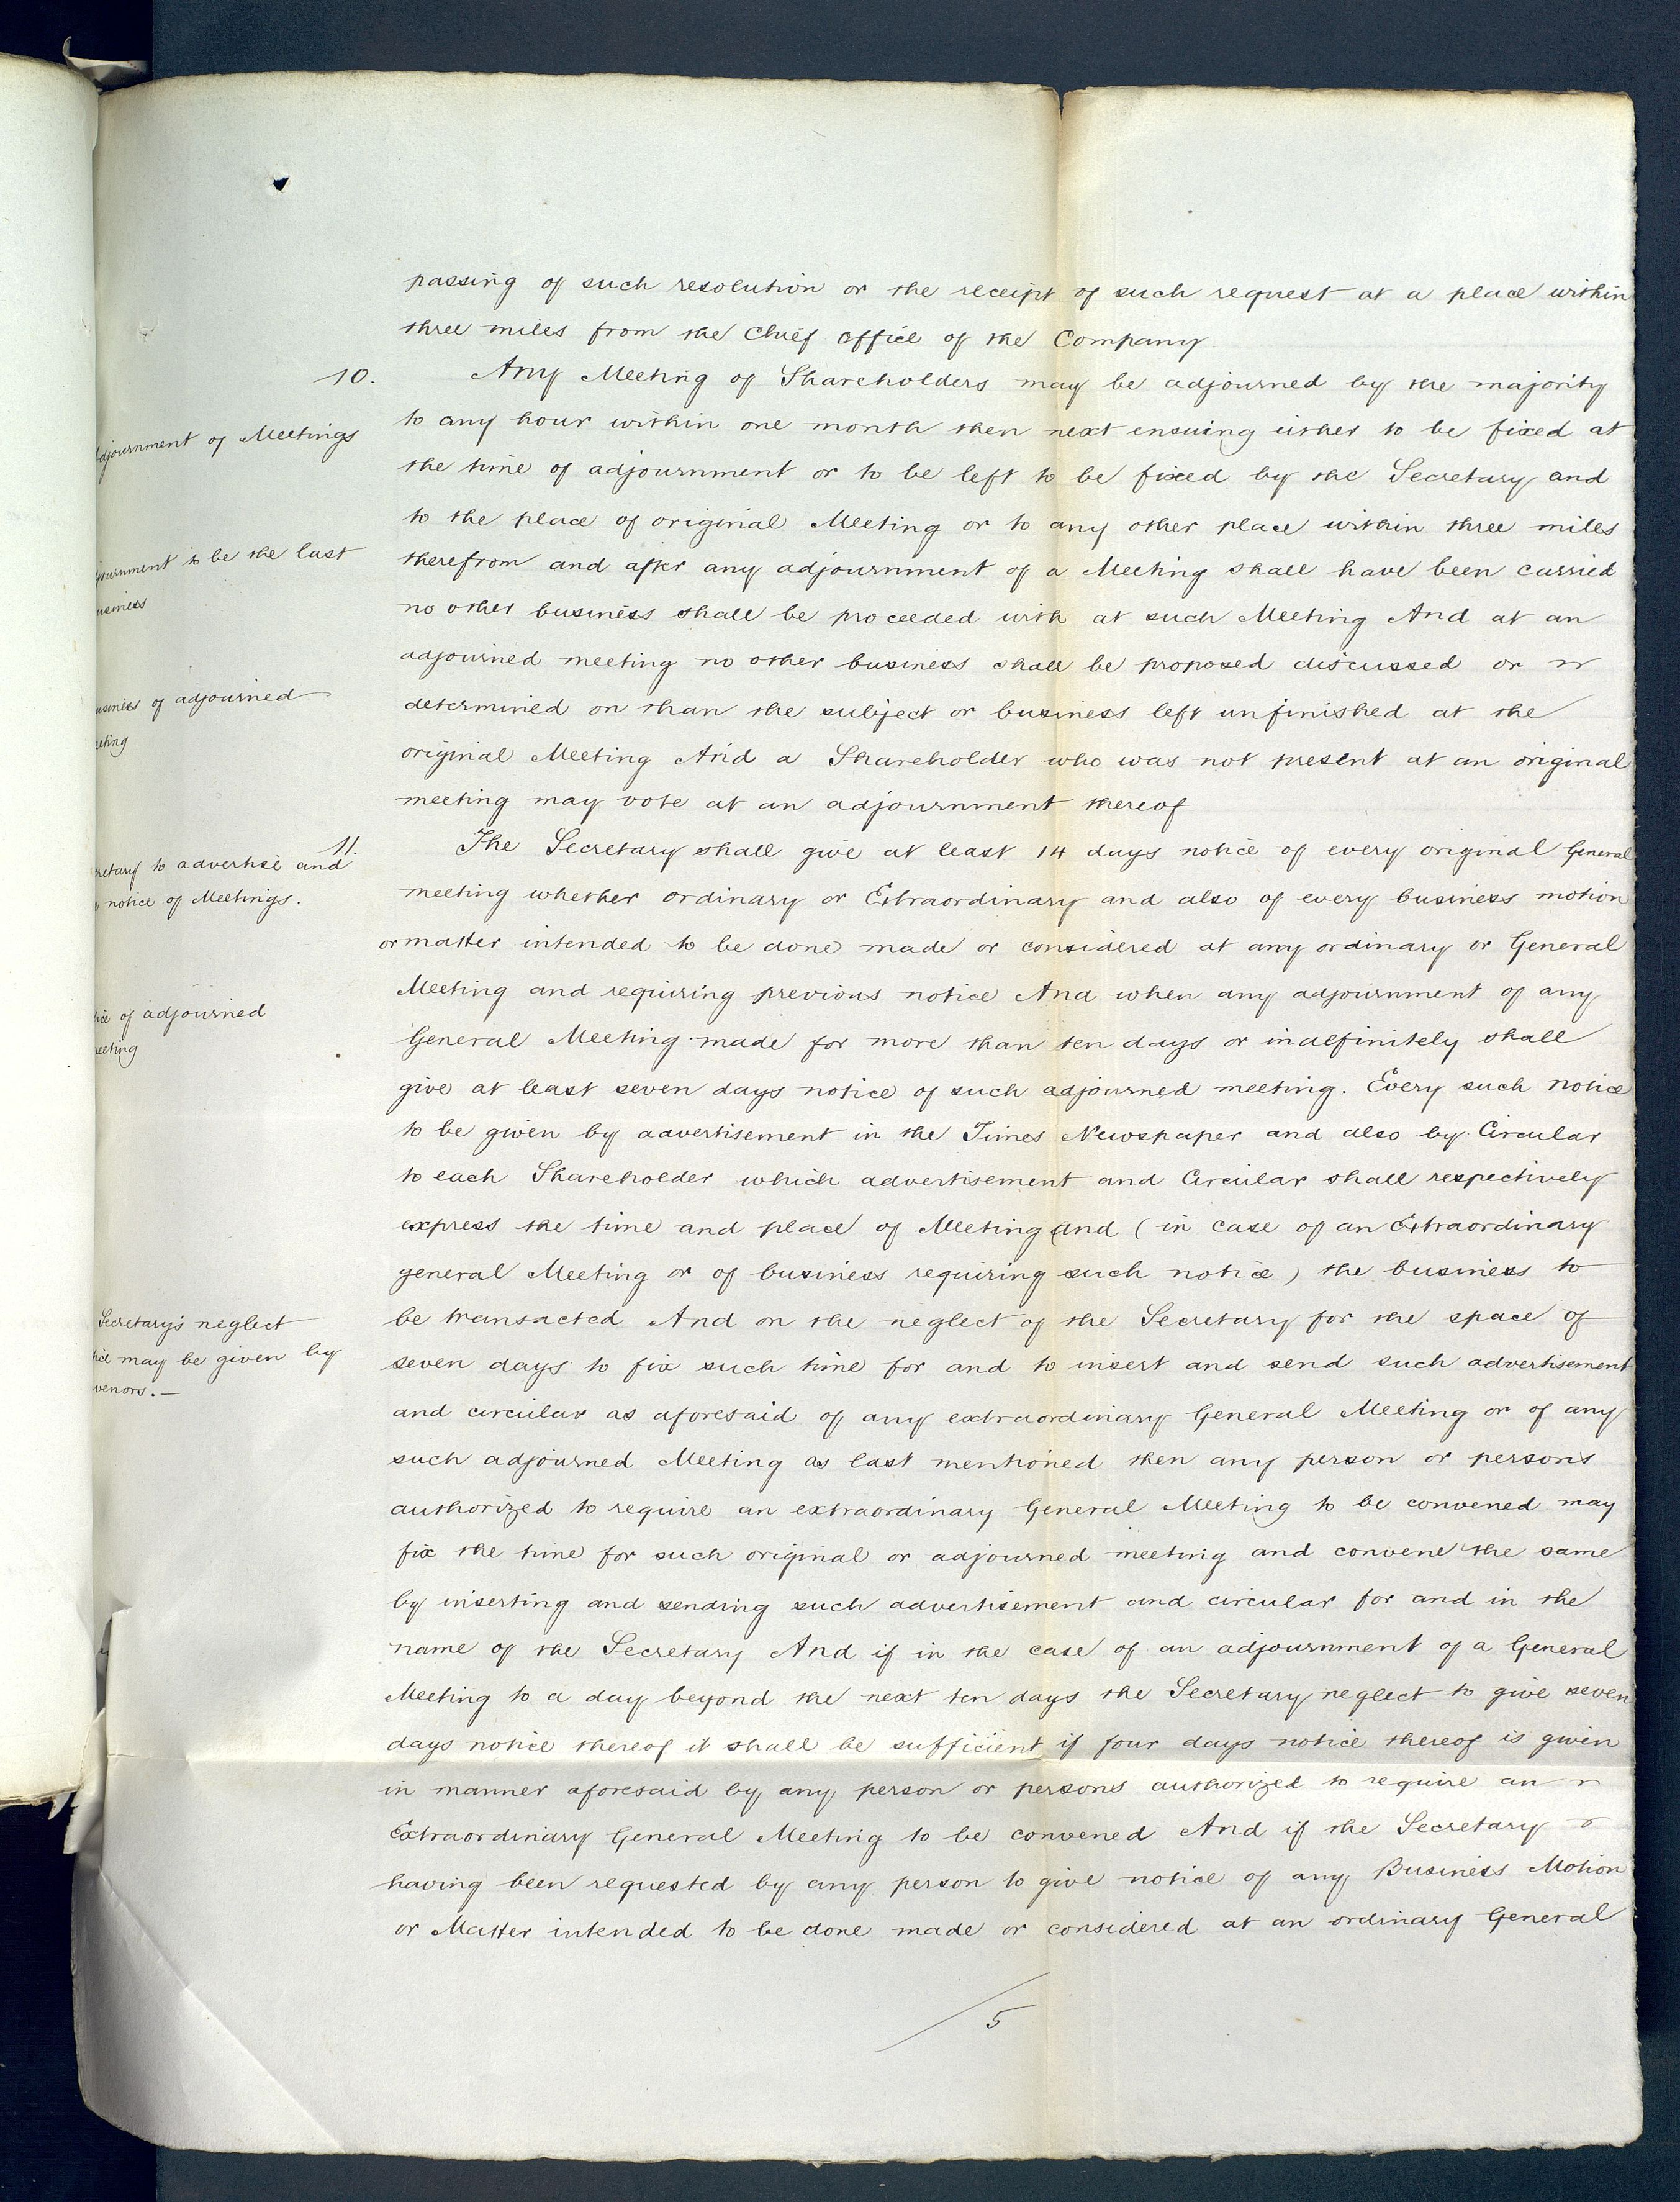 passing of such resolution or the receipt of such request at a place within
three miles from the Chief Office of the Company.
10.
Any Meeting of Shareholders may be adjourned by the majority
djournment of Meetings
to any hour within one month then next ensuing either to be fixed at
the time of adjournment or to be left to be fixed by the Secretary and
to the place of original Meeting or to any other place within three miles
journment to be the last
usiness
therefrom and after any adjournment of a Meeting shall have been carried
no other business shall be proceeded with at such Meeting And at an
adjourned meeting no other business shall be proposed discussed or
usiness of adjourned
eeting
determined on than the subject or business left unfinished at the
original Meeting And a Shareholder who was not present at an original
meeting may vote at an adjournment thereof
11.
The Secretary shall give at least 14 days notice of every original General
cretary to advertise and
e notice of Meetings.
meeting whether ordinary or Extraordinary and also of every business motion
or matter intended to be done made or considered at any ordinary or General
Meeting and requiring previous notice And when any adjournment of any
tice of adjourned
eeting
General Meeting made for more than ten days or indefinitely shall
give at least seven days notice of such adjourned meeting. Every such notice
to be given by advertisement in the Times Newspaper and also by Circular
to each Shareholder which advertisement and Circular shall respectively
express the time and place of Meeting and (in case of an Extraordinary
general Meeting or of business requiring such notice) the business to
Secretary's neglect
tice may be given by
venors.—
be transacted And on the neglect of the Secretary for the space of
seven days to fix such time for and to insert and send such advertisement
and circular as aforesaid of any extraordinary General Meeting or of any
such adjourned Meeting as last mentioned then any person or persons
authorized to require an extraordinary General Meeting to be convened may
fix the time for such original or adjourned meeting and convene the same
by inserting and sending such advertisement and circular for and in the
name of the Secretary And if in the case of an adjournment of a General
Meeting to a day beyond the next ten days the Secretary neglect to give seven
days notice thereof it shall be sufficient if four days notice thereof is given
in manner aforesaid by any person or persons authorized to require an
Extraordinary General Meeting to be convened And if the Secretary
having been requested by any person to give notice of any Business Motion
or Matter intended to be done made or considered at an ordinary General
5